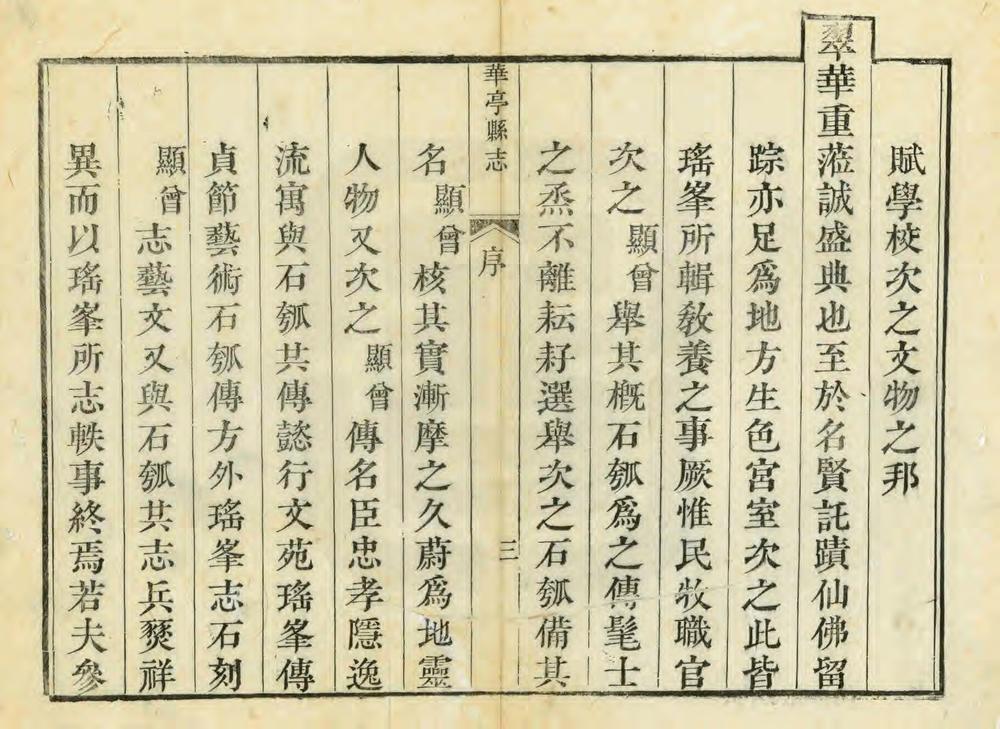 賦學校次之文物之邦
翠華重蒞誠盛典也至於名賢託蹟仙佛留
踪亦足爲地方生色宮室次之此皆
瑤峯所輯敎養之事厥惟民牧職官
次之顯曾舉其槪石瓠爲之傳髦士
之烝不離耘耔選舉次之石瓠備其
華亭縣志
序
三
名顯曾核其實漸摩之久蔚爲地靈
人物又次之顯曾傳名臣忠孝隱逸
流寓與石瓠共傳懿行文苑瑤峯傳
貞節藝術石瓠傳方外瑤峯志石刻
顯曾志藝文又與石瓠共志兵燹祥
異而以瑤峯所志軼事終焉若夫參